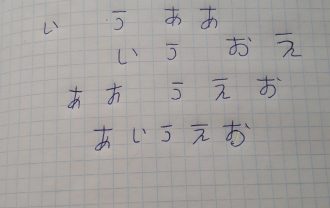 い う あ あ
い う お え
あ あ う え お
あ い う え お